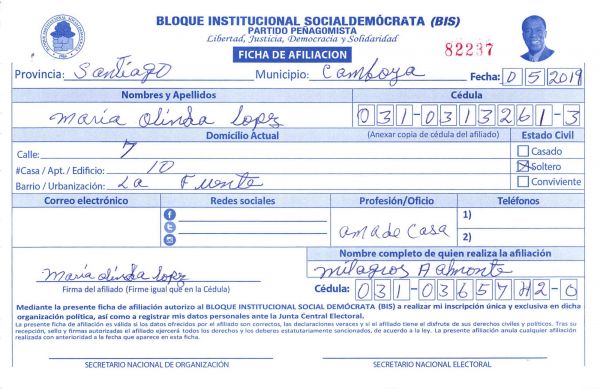 BLOQUE INSTITUCIONAL SOCIALDEMÓCRATA (BIS)
PARTIDO PEÑAGOMISTA
Libertad, Justicia, Democracia y Solidaridad
FICHA DE AFILIACION
82237
Provincia: Santiago Municipio: Camboya Fecha: 05 2019
Nombres y Apellidos Cédula
María Olinda Lopez 031-0313261-3
Domicilio Actual (Anexar copia de cédula del afiliado) Estado Civil
Calle: 7 Casado
#Casa / Apt. / Edificio: 10 Soltero
Barrio / Urbanización: La Fuente Conviviente
Correo electrónico Redes sociales Profesión/Oficio Teléfonos
ama de Casa 1)
2)
Nombre completo de quien realiza la afiliación
María Olinda Lopez Milagros A almonte
Firma del afiliado (Firme igual que en la Cédula) Cédula: 031-0365742-0
Mediante la presente ficha de afiliación autorizo al BLOQUE INSTITUCIONAL SOCIAL DEMÓCRATA (BIS) a realizar mi inscripción única y exclusiva en dicha
organización política, así como a registrar mis datos personales ante la Junta Central Electoral.
La presente ficha de afiliación es válida si los datos ofrecidos por el afiliado son correctos, las declaraciones veraces y si el afiliado tiene el disfrute de sus derechos civiles y políticos. Tras su
recepción, sello y firmas autorizadas el afiliado ejercerá todos los derechos y los deberes estatutariamente sancionados, de acuerdo a la ley. La presente afiliación anula cualquier afiliación
realizada con anterioridad a la fecha que aparece en esta ficha.
SECRETARIO NACIONAL DE ORGANIZACIÓN SECRETARIO NACIONAL ELECTORAL